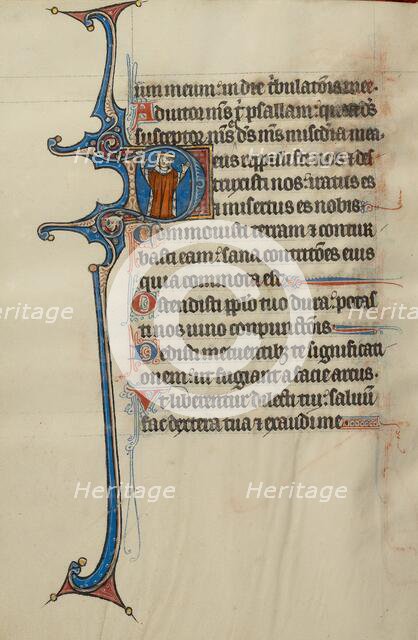 um meum: in die tribulationis mee.
Adiutor meus tibi psallam: quia deus
susceptor meus es deus meus misericordia mea.
Deus reppulisti nos et des
truxisti nos: iratus es
et misertus es nobis.
Commouisti terram et contur
basti eam: sana contritiones eius
quia commota est.
Ostendisti populo tuo dura: potas
ti nos uino conpunctionis.
Dedisti metuentibus te significati
onem: ut fugiant a facie arcus.
Ut liberentur dilecti tui: saluum
fac dextera tua et exaudi me.
Heritage Heritage
Heritage Heritage
Heritage Heritage